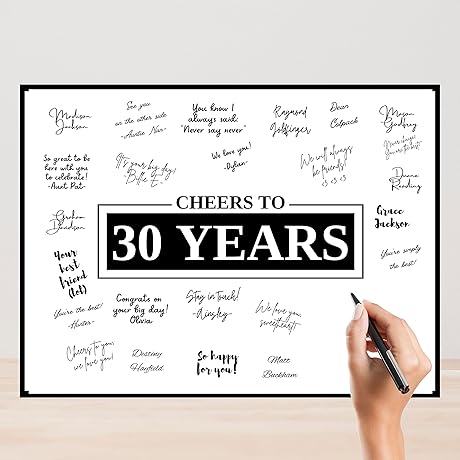 Madison
Jackson
See you
on the other side
-Auntie Nan-
You know I
always said:
"Never say never"
Raymond
Golfinger
Dean
Colpack
Megan
Bradfrey
So great to be
here with you
to celebrate!
-Aunt Pat-
It's your big day!
Billie E.
We love you!
-Dylan-
We will always
be friends!
<3 <3 <3
You've always
been the best!
Deanna
Reading
CHEERS TO
30 YEARS
Graham
Davidson
Grace
Jackson
Your
best
friend
(lol)
You're simply
the best!
You're the best!
-Hunter-
Congrats on
your big day!
Olivia
Stay in touch!
-Ainsley-
We love you,
sweetheart!
Cheers to you,
we love you!
Destiny
Hayfield
So happy
for you!
Matt
Buckham